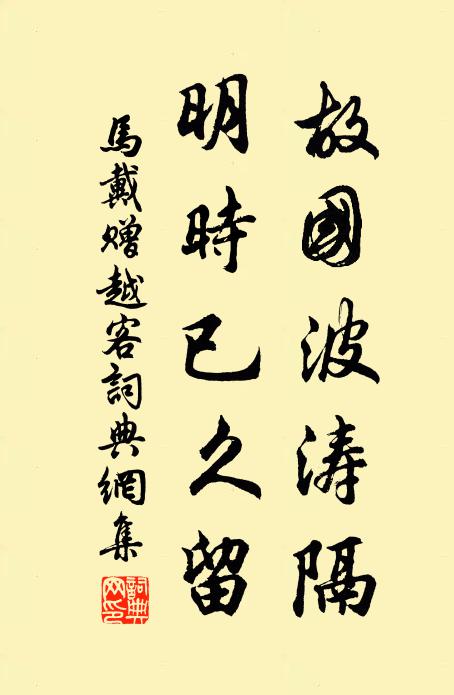 故國波涛隔
明時已久留
馬戴贈越客詞典網集
詞典网印